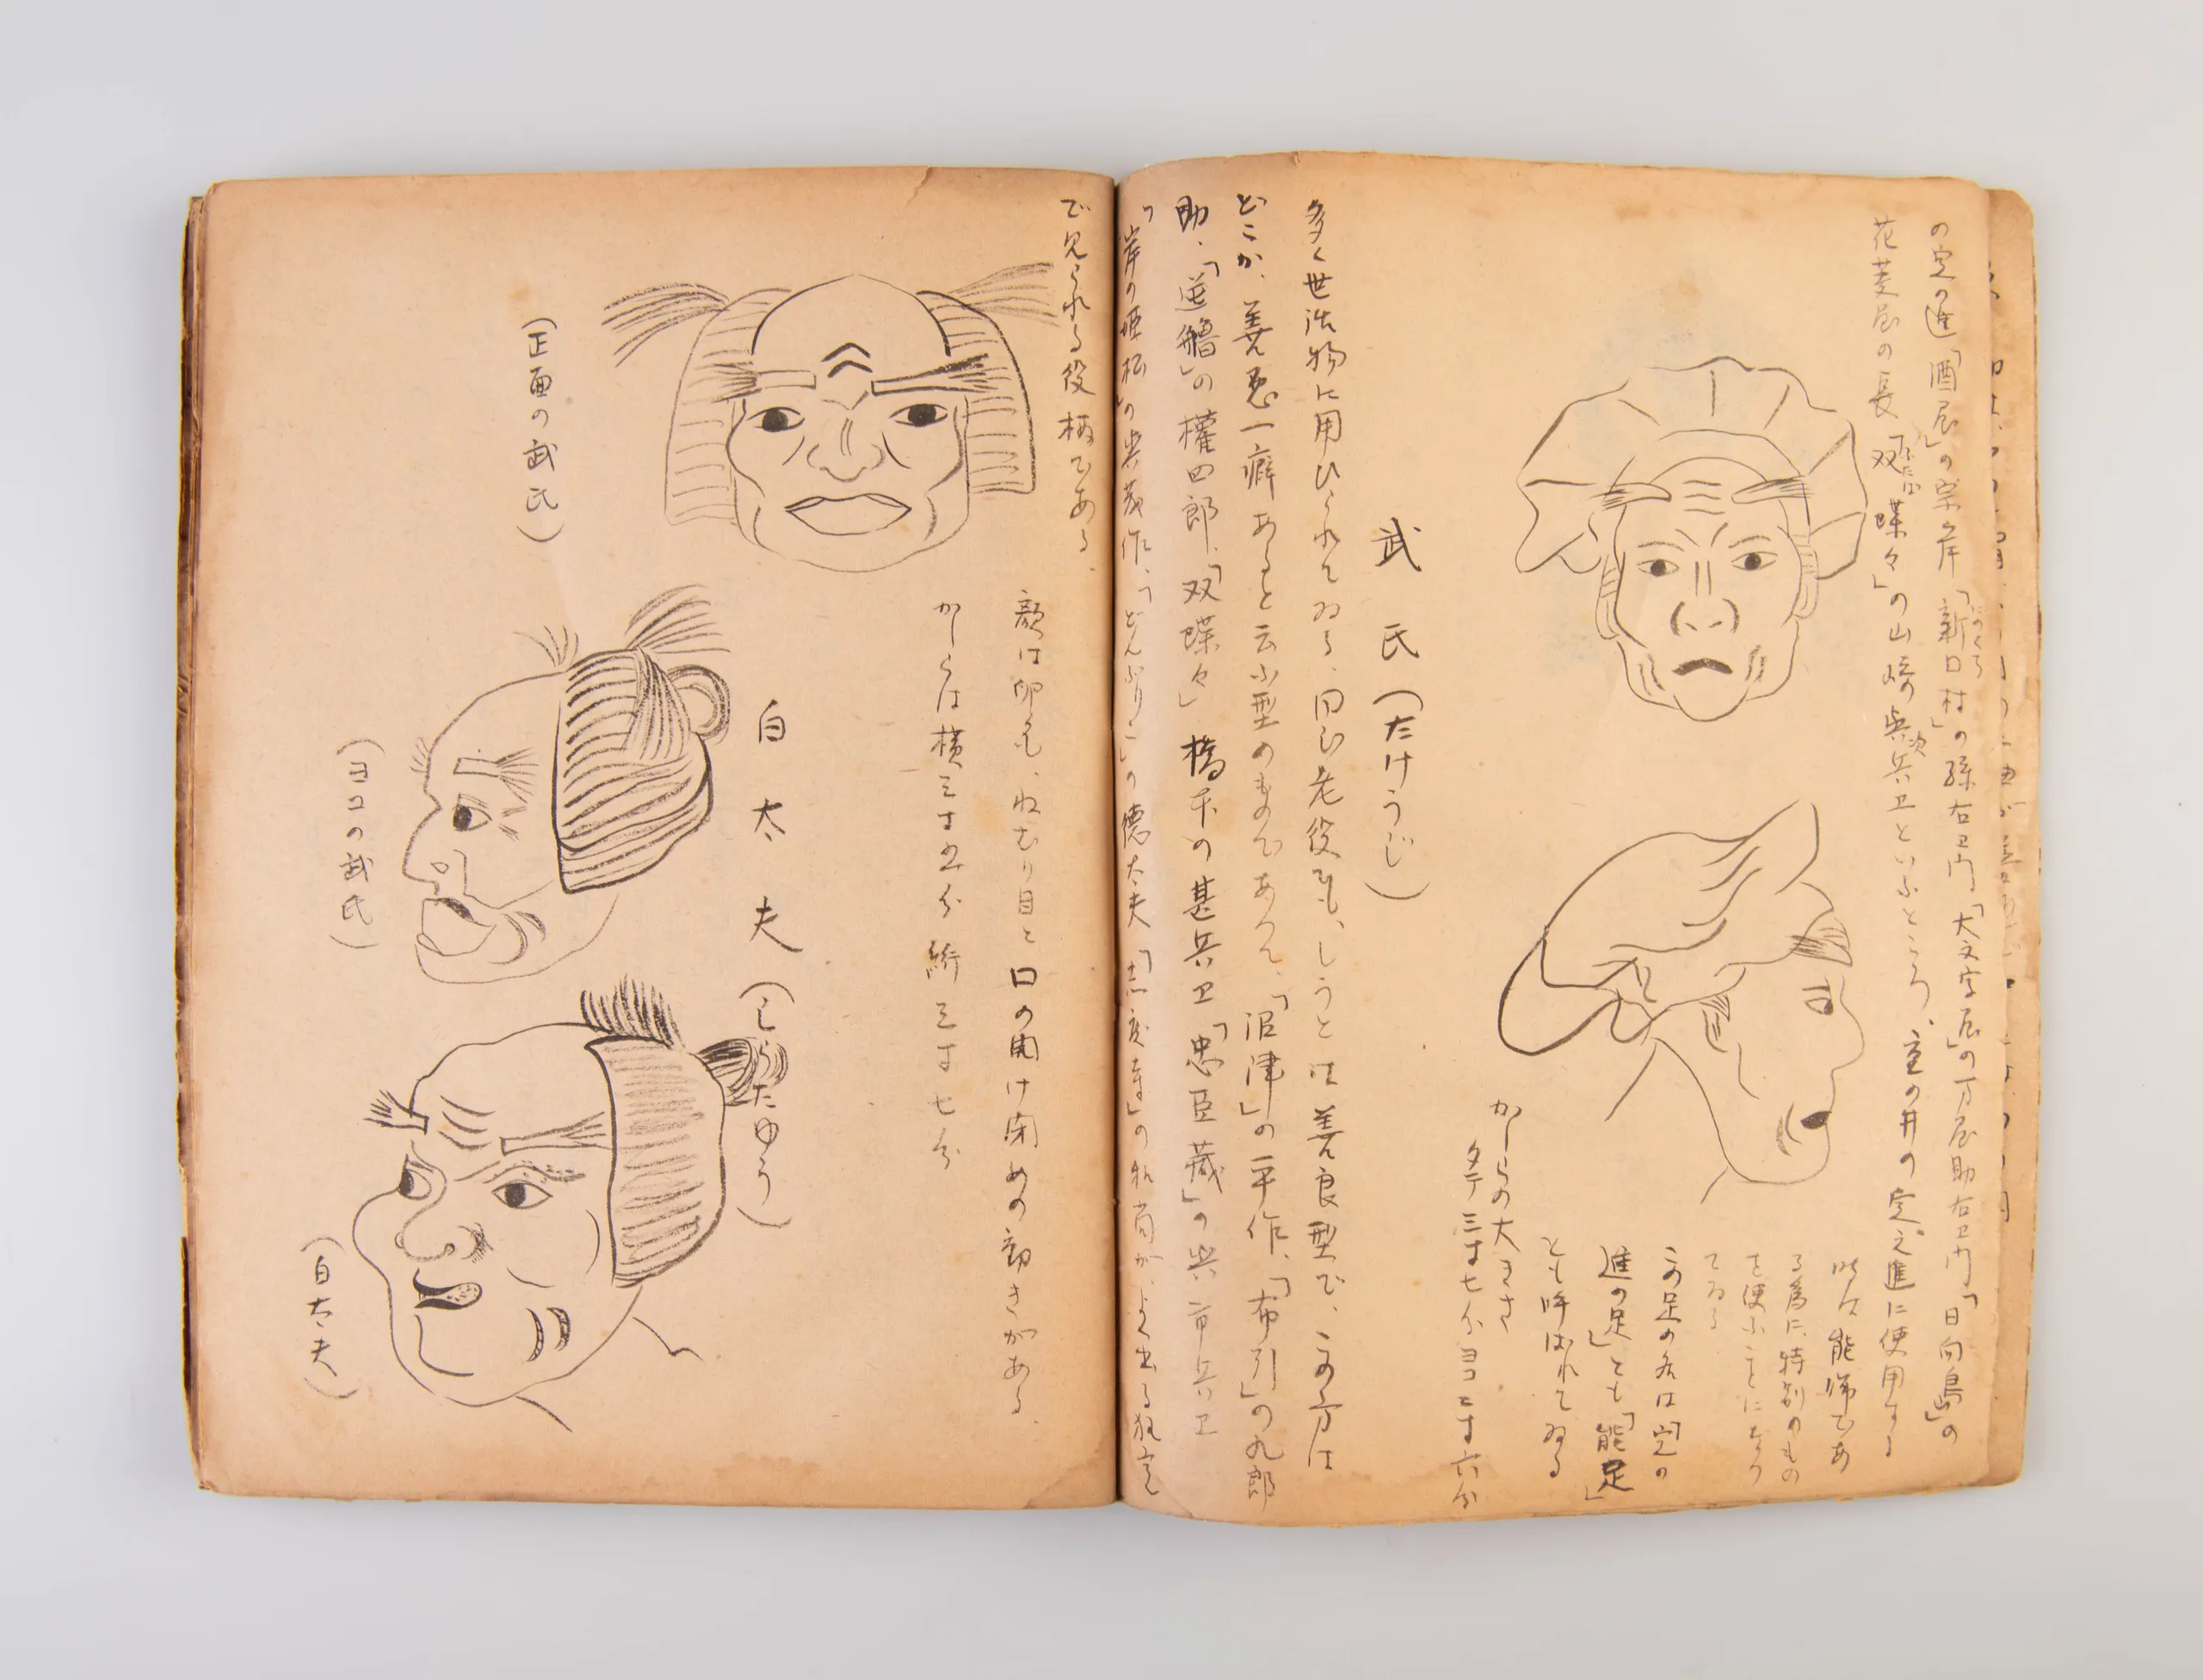 の定の進「酒屋」の宗岸「新口村」の孫右卫门、「大文字屋」の万屋助右卫门「日向島」の
にのくち
花菱屋の長「双蝶々」の山崎の與次兵卫といふところ、重の井の定之進に使用する
ふたば
此は能師であ
る為に、特別のもの
を使ふことになつ
てゐる
この足の名は「定の
進の足」とも「能足」
とも呼ばれてゐる
かしらの大きさ
タテ三寸七分ヨコ二寸六分
武氏(たけうじ)
多く世話物に用ひられてゐる、同じ老役でも、しうとは善良型で、この方は
どこか、善悪一癖あると云ふ型のものであつて、「沼津」の平作、「布引」の九郎
助、「逆艪」の權四郎、「双蝶々」橋本の甚兵卫「忠臣蔵」の與市兵卫
「岸の姫松」の與茂作、「どんぶりこ」の德太夫「志度寺」の和尚が、よく出る狂言
で見られる役柄である、
(正面の武氏)
顔は卵色、ねむり目と口の開け閉めの動きがある、
かしらは横三寸五分 縦三寸七分
白太夫(しらたゆう)
(ヨコの武氏)
(白太夫)